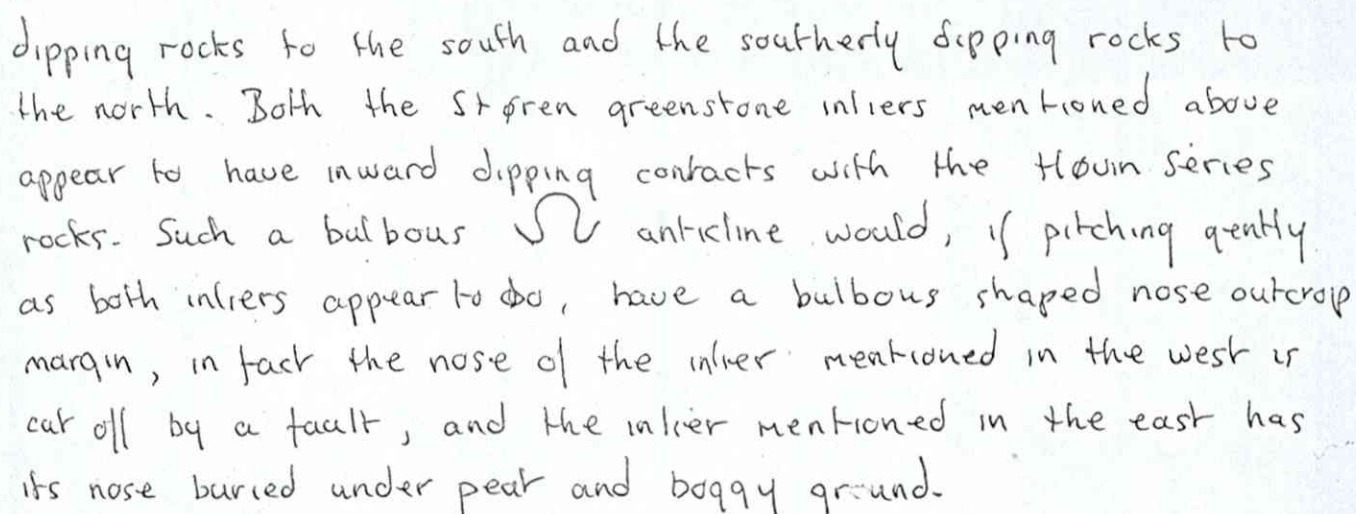 dipping rocks to the south and the southerly dipping rocks to
the north. Both the Støren greenstone inliers mentioned above
appear to have inward dipping contacts with the Høvin Series
rocks. Such a bulbous anticline would, if pitching gently
as both inliers appear to do, have a bulbous shaped nose outcrop
margin, in fact the nose of the inlier mentioned in the west is
cut off by a fault, and the inlier mentioned in the east has
its nose buried under peat and boggy ground.